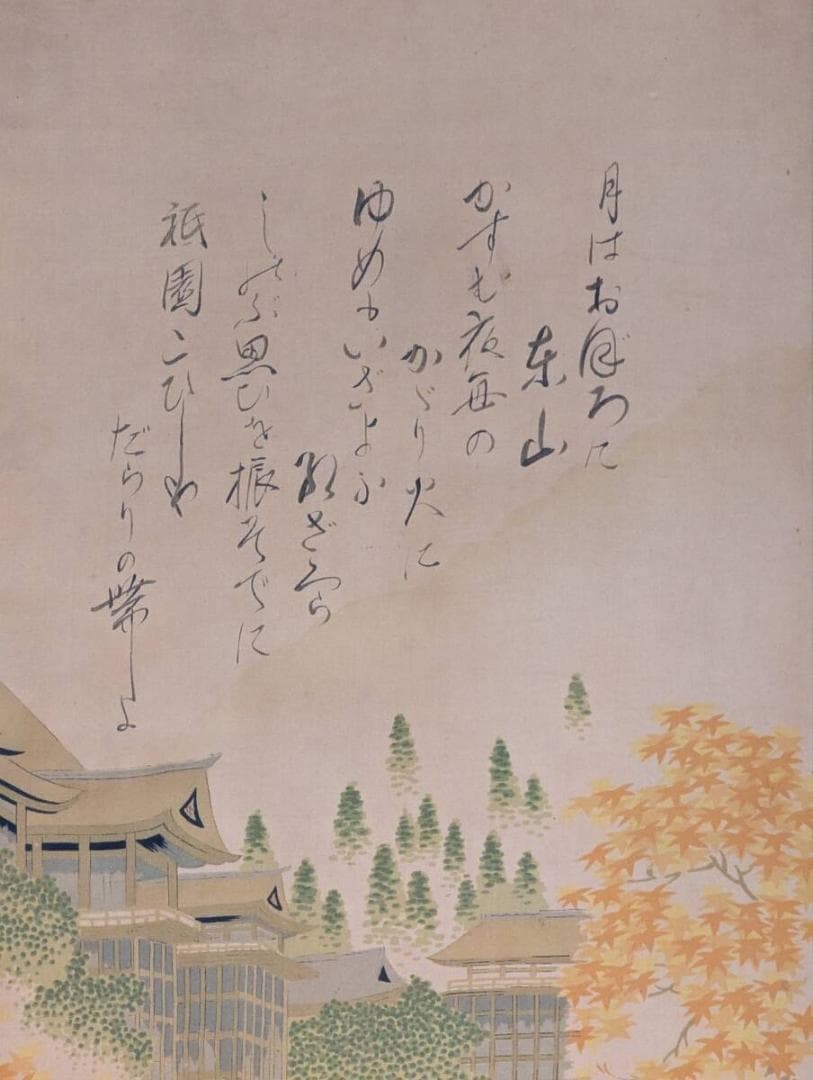 月はおぼろに
東山
かすむ夜毎の
かゞり火に
ゆめもいざよふ
紅ざくら
しのぶ思ひを振そでに
祇園こひしや
だらりの帯よ